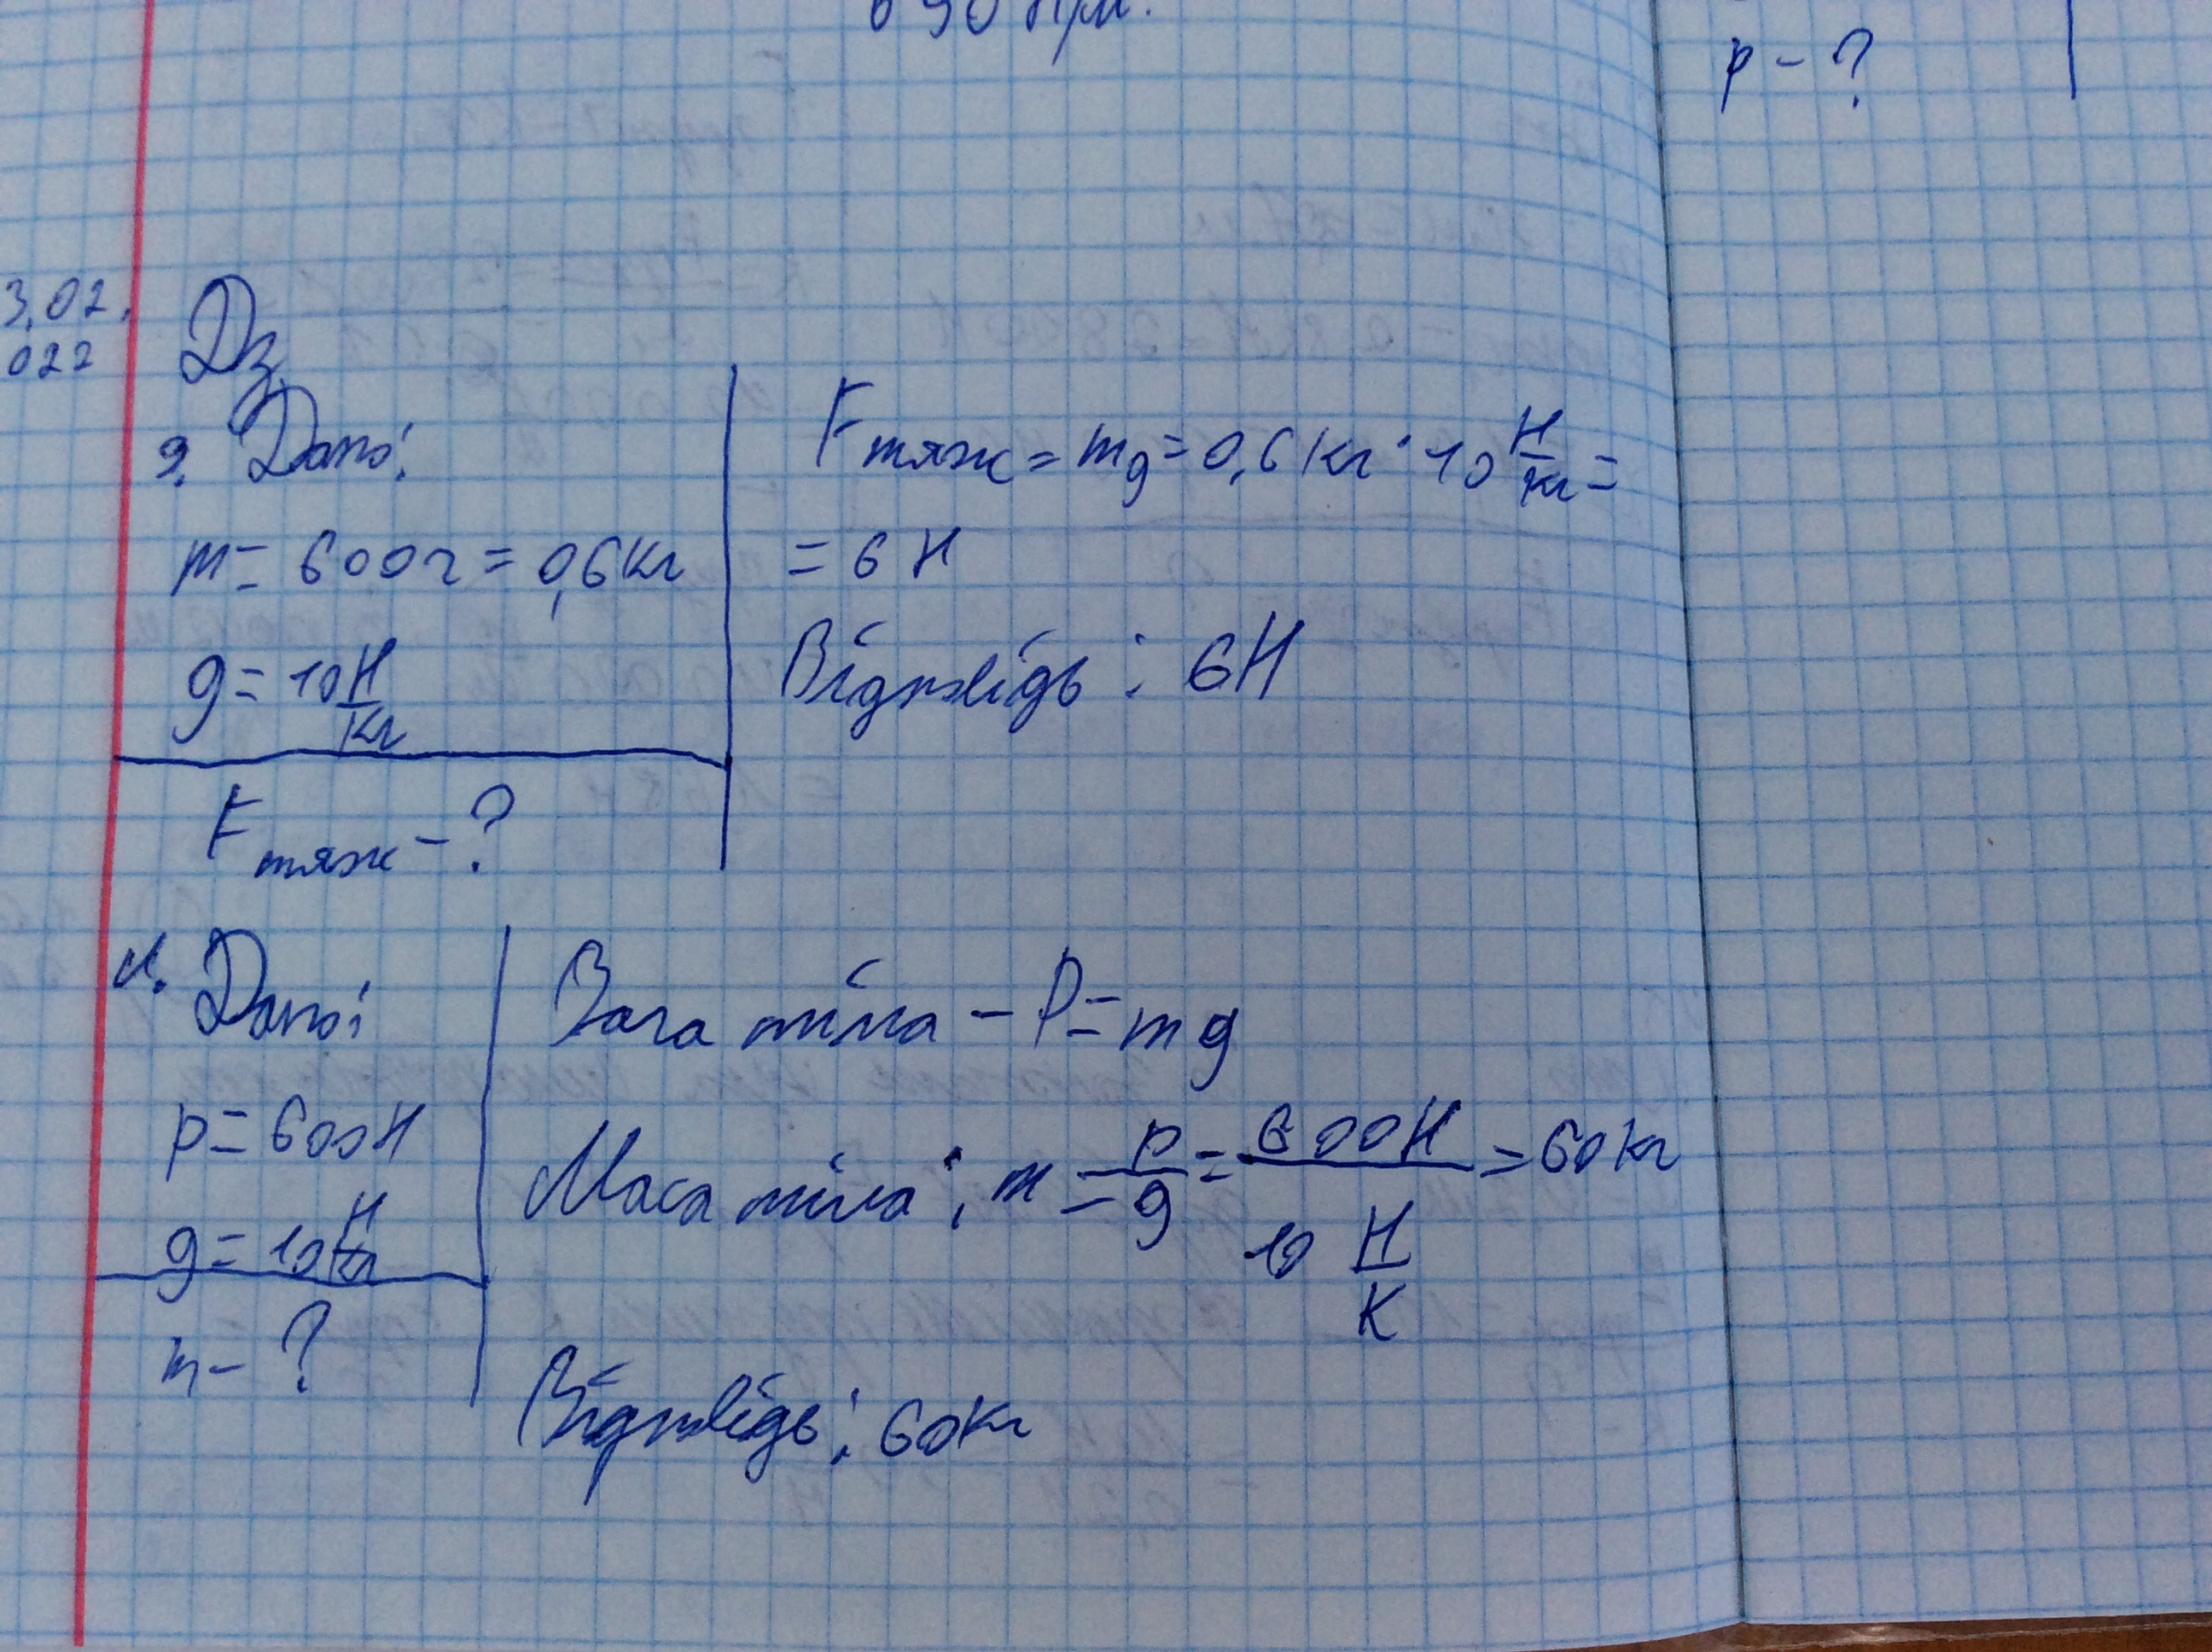 p - ?
3.02.
022
Дз
9. Дано:
m = 600г = 0,6кг
g = 10 Н/кг
Fтяж - ?
Fтяж = mg = 0,6 кг · 10 Н/кг =
= 6 Н
Відповідь: 6Н
Дано:
p = 600Н
g = 10 Н/кг
m - ?
Вага тіла - P = mg
Маса тіла: m = p/g = 600Н / 10 Н/К = 60кг
Відповідь: 60кг